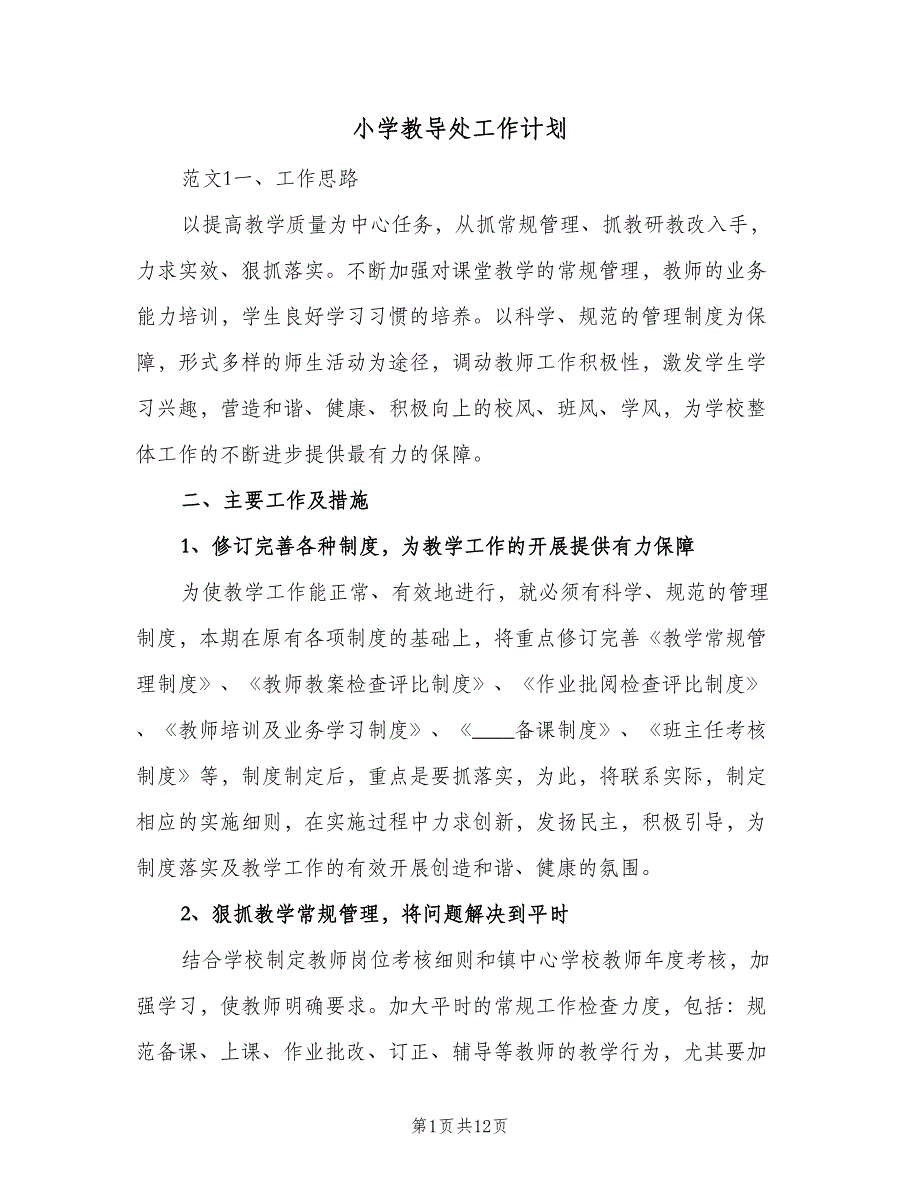 小学教导处工作计划
范文1一、工作思路
以提高教学质量为中心任务，从抓常规管理、抓教研教改入手，
力求实效、狠抓落实。不断加强对课堂教学的常规管理，教师的业务
能力培训，学生良好学习习惯的培养。以科学、规范的管理制度为保
障，形式多样的师生活动为途径，调动教师工作积极性，激发学生学
习兴趣，营造和谐、健康、积极向上的校风、班风、学风，为学校整
体工作的不断进步提供最有力的保障。
二、主要工作及措施
1、修订完善各种制度，为教学工作的开展提供有力保障
为使教学工作能正常、有效地进行，就必须有科学、规范的管理
制度，本期在原有各项制度的基础上，将重点修订完善《教学常规管
理制度》、《教师教案检查评比制度》、《作业批阅检查评比制度》
、《教师培训及业务学习制度》、《____备课制度》、《班主任考核
制度》等，制度制定后，重点是要抓落实，为此，将联系实际，制定
相应的实施细则，在实施过程中力求创新，发扬民主，积极引导，为
制度落实及教学工作的有效开展创造和谐、健康的氛围。
2、狠抓教学常规管理，将问题解决到平时
结合学校制定教师岗位考核细则和镇中心学校教师年度考核，加
强学习，使教师明确要求。加大平时的常规工作检查力度，包括：规
范备课、上课、作业批改、订正、辅导等教师的教学行为，尤其要加
第1页共12页